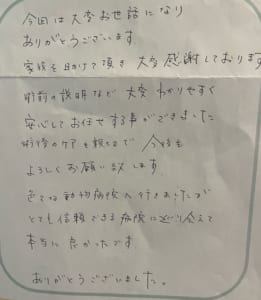 今回は大変お世話になり
ありがとうございます。
家族を助けて頂き 大変感謝しております
術前の説明など 大変 わかりやすく
安心してお任せする事ができました
術後のケアも親切で 今後も
よろしくお願い致します。
色々な動物病院へ行きましたが
とても信頼できる病院に巡り会えて
本当に良かったです。
ありがとうございました。